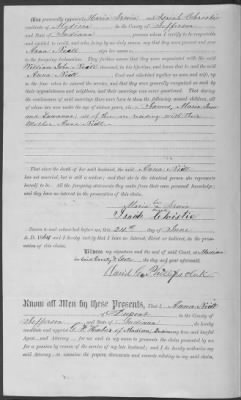 Also personally appeared Maria Lewis and Isaiah Christie
residents of Madison in the County of Jefferson
and State of Indiana persons whom I certify to be respectable
and entitled to credit, and who being by me duly sworn, say that they were present and saw
Anna Niett sign her name
to the foregoing Declaration. They further swear that they were acquainted with the said
William John Niett deceased, in his life time, and know that he and the said
Anna Niett lived and cohabited together as man and wife, up
to the time when he entered the service, and that they were generally recognized as such by
their acquaintances and neighbors, and their marriage was never questioned. That during
the continuance of said marriage there were born to them the following named children, all
of whom are now under the age of sixteen years, to wit: Maria Ann
and Susanna, all of whom are residing with their
Mother Anna Niett
That since the death of her said husband, the said Anna Niett
has not married, but is still a widow; and that she is the identical person she represents
herself to be. All the foregoing statements they make from their own personal knowledge; and
they have no interest in the prosecution of this claim.
Maria Lewis
Isaiah Christie
Sworn to and subscribed before me, this 24th day of June
A. D. 1864 and I hereby certify that I have no Interest, direct or indirect, in the prosecution
of this claim.
Witness my signature and the seal of said Court, at Madison
in said County & State the day and year aforesaid.
David G. Phillips Clerk
Know all Men by these Presents, That I Anna Niett
of Dupont
Jefferson and State of Indiana do hereby
constitute and appoint of Madison, Indiana my true and lawful
Agent and Attorney for me and in my name to prosecute the claim presented by me
for a pension by reason of the service of my late husband; and I do hereby authorize my
said Attorney to examine the papers, documents and records relating to my said claim.